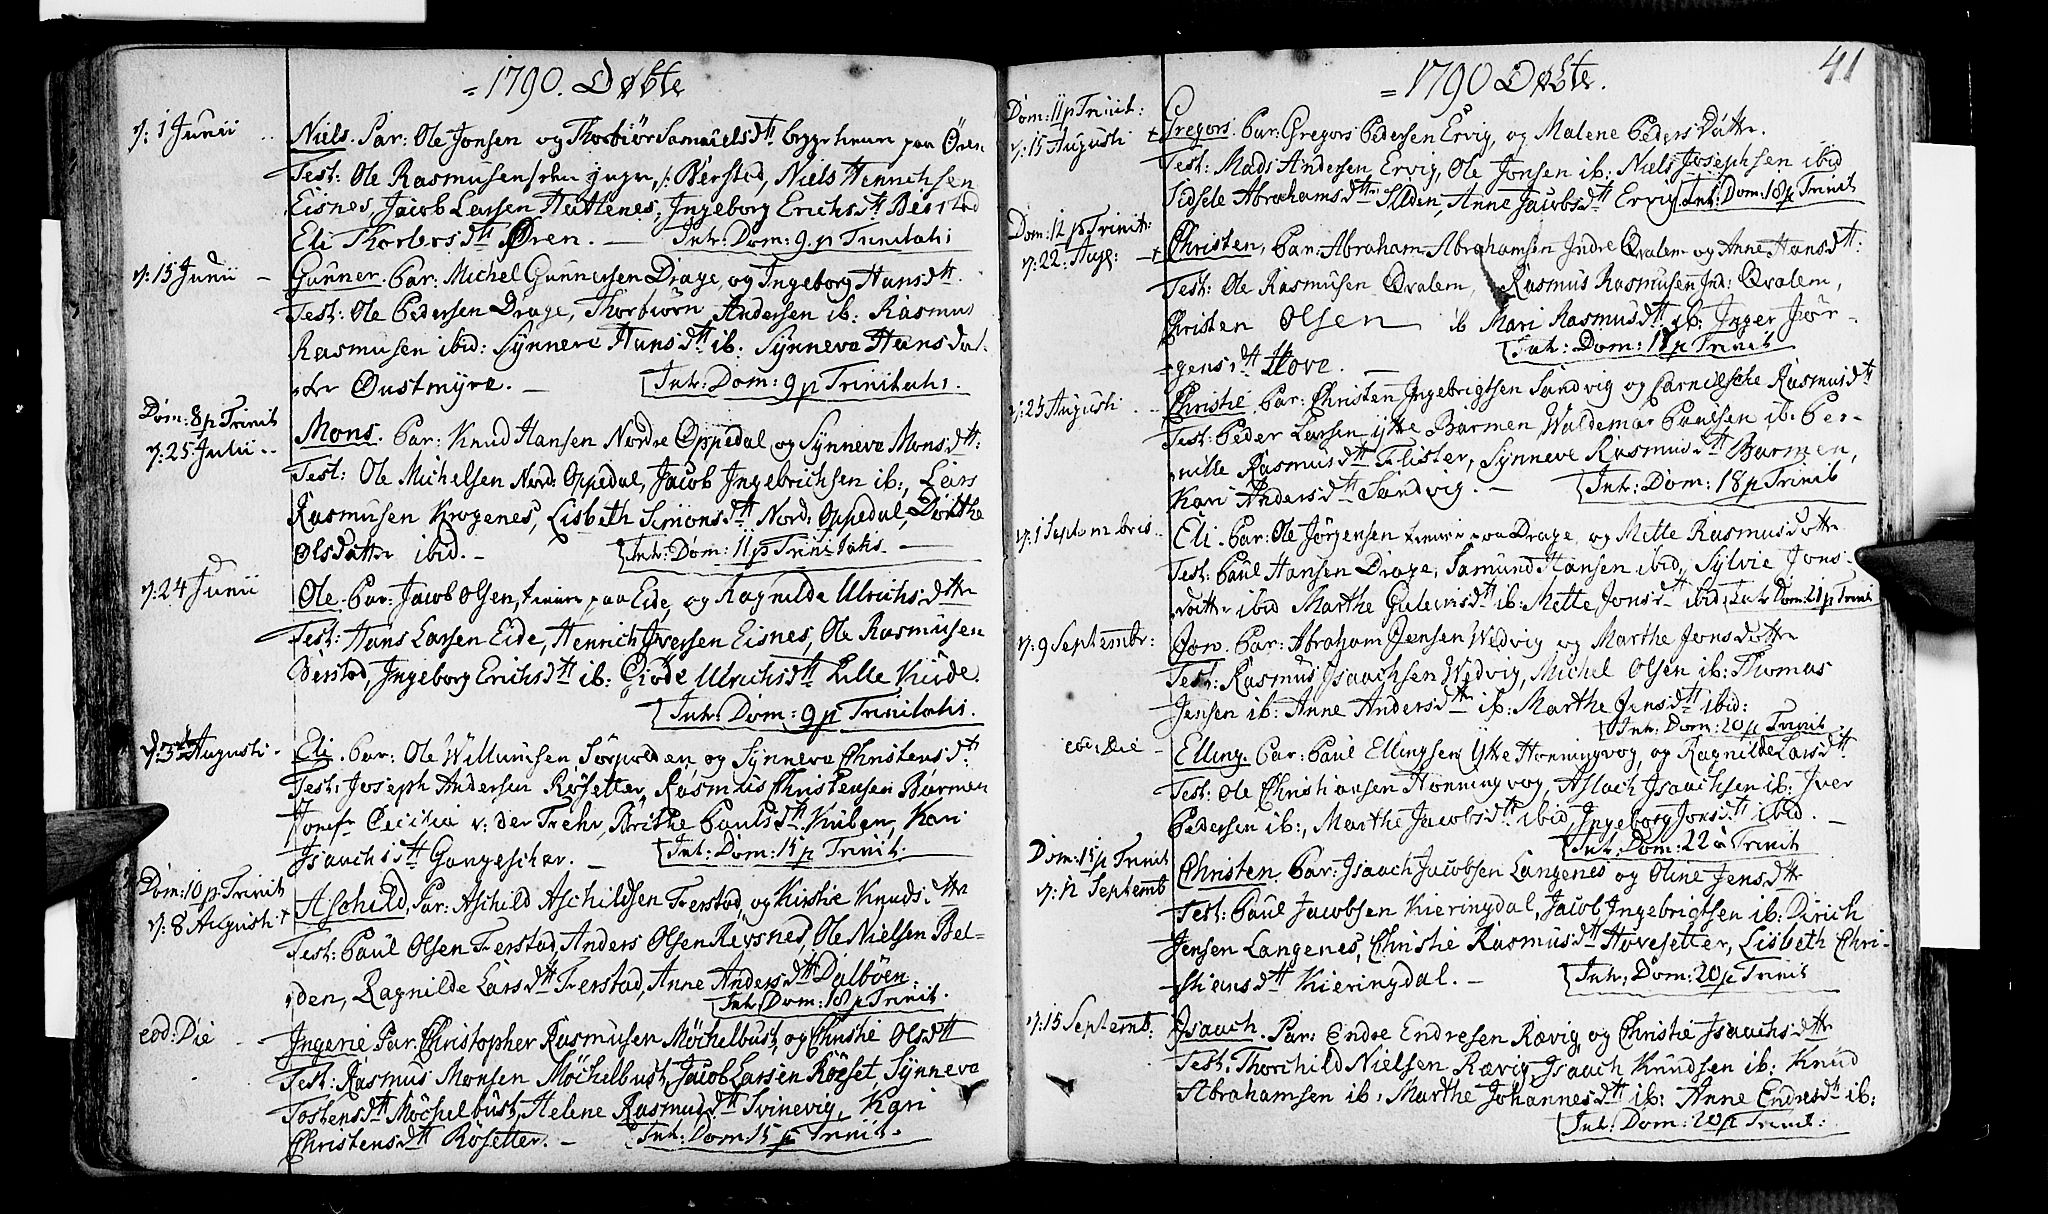 = 1790. Døbte
d: 1 Junii ..
Niels. Par: Ole Jonsen og Thorbiør Samuelsdtt bygghuun paa Ören
Test: Ole Rasmusen /:den yngre,:/ Berstad, Niels Henrichsen
Eisnes, Jacob Larsen Hattenes, Ingeborg Erichsdtt Berstad
Eli Thorlersdtt Øren. — Intr: Dom: 9. p Trinitatis
d: 15 Junii —
Gunner. Par: Michel Gunnersen Drage, og Ingeborg Hansdtt.
Test: Ole Pedersen Drage, Thorbiörn Andersen ib: Rasmus
Rasmusen ibid: Synneve Hansdtt ib: Synneva Hansdat-
ter Oustmyre. — Intr: Dom: 9 p Trinitatis.
Dom: 8 p Trinit
d: 25 Julii ..
Mons. Par: Knud Hansen Nordre Oppedal og Synneva Monsdtt:
Test: Ole Michelsen Nord: Oppedal, Jacob Ingebrichsen ib:, Lars
Rasmusen Krogenes, Lisbeth Simonsdtt Nord: Oppedal, Dorthe
Olsdatter ibid. — Intr: Dom: 11 p Trinitatis —
d: 24 Junii
Ole. Par: Jacob Olsen, tienere paa Eide, og Ragnilde Ulrichsdtter
Test: Hans Larsen Eide, Henrich Iversen Eisnes, Ole Rasmusen
Berstad, Ingeborg Erichsdtt ib: Giöde Ulrichsdtt Lille Kiirde.
Intr: Dom: 9 p Trinitatis.
d: 3 Augusti -
Eli. Par: Ole Willumsen Sørpolden og Synneva Christensdtt:
Test: Joseph Andersen Røsetter, Rasmus Christensen Barmen
Jomfr Cecilia v: der Fehr, Brithe Paulsdtt Kuben, Kari
Isaachsdtt Gangescher. — Intr: Dom: 15 p Trinit.
Dom: 10 p: Trinit
d: 8 Augusti +
Aschild, Par: Aschild Aschildsen Ferstad, og Kirstie Knudsdtter
Test: Paul Olsen Ferstad, Anders Olsen Revsnes, Ole Nielsen Bel-
den, Ragnilde Larsdtt Ferstad, Anne Andersdtt Dalböen.
Intr: Dom: 18 p Trinit.
eod: Die —
Ingerie Par: Christopher Rasmusen Möchelbust, og Christie Olsdtt
Test: Rasmus Monsen Möchelbust, Jacob Larsen Röeset, Synneva
Tostensdtt Möchelbust, Helene Rasmusdtt Svinevig, Kari
Christensdtt Rösetter. — Intr: Dom: 15 p Trinit.
41
= 1790 Døbte.
Dom: 11 p Trinit:
d: 15 Augusti +
Gregors. Par: Gregors Pedersen Ervig, og Malene Peders Datter.
Test: Mads Andersen Ervig, Ole Jonsen ib: Niels Josephsen ibid
Sidsele Abrahamsdtt Selden, Anne Jacobsdtt Ervig Intr: Dom: 18 p Trinit
Dom: 12 p Trinit:
d: 22 Aug: +
Christen, Par: Abraham Abrahamsen Indre Qvalem og Anne Hansdtt:
Test: Ole Rasmusen Qvalem, Rasmus Rasmusen Ind: Qvalem,
Christen Olsen ib Mari Rasmusdtt ib: Inger Jör-
gensdtt Hove. — Intr: Dom: 18 p Trinit
d: 25 Augusti ..
Christie, Par: Christen Ingebrigtsen Sandvig og Carnilsche Rasmusdtt
Test: Peder Larsen ytre Barmen, Waldemar Paulsen ib: Per-
nille Rasmusdtt Flister, Synneve Rasmusdtt Barmen,
Kari Andersdtt Sandvig. — Intr: Dom: 18 p Trinit
d: 1 Septembris ..
Eli. Par: Ole Jörgensen tienere paa Drage, og Mitte Rasmusdatter
Test: Paul Hansen Drage, Samund Hansen ibid, Sylvie Jons-
datter ibid Marthe Gulensdtt ib: Mette Jonsdtt ibid: Intr Dom: 21 p Trinit
d: 9 Septembr:
Jon. Par: Abraham Jensen Wedvig og Marthe Jonsdatter
Test: Rasmus Isaachsen Wedvig, Michel Olsen ib: Thomas
Jensen ib: Anne Andersdtt ib: Marthe Jensdtt ibid:
Intr: Dom: 20 p Trinit
eod: Die —
Elling. Par: Paul Ellingsen Ytre Honningvog, og Ragnilde Larsdtt.
Test: Ole Christiansen Honningvog, Aslach Isaachsen ib: Iver
Pedersen ib:, Marthe Jacobsdtt ibid, Ingeborg Jonsdtt ibid. —
Intr: Dom: 22 a Trinit
Dom: 15 p Trinit
d: 12 Septemb
Christen. Par: Isaach Jacobsen Langenes og Oline Jensdtt
Test: Paul Jacobsen Kieringdal, Jacob Ingebrigtsen ib: Dirich
Jensen Langenes, Christie Rasmusdtt Hovesetter, Lisbeth Chri-
stiansdtt Kieringdal. — Intr: Dom: 20 p Trinit
d: 15 Septemb:
Isaach. Par: Endre Endresen Rævig, og Christie Isaachsdtt
Test: Thorchild Nielsen Rævig, Isaach Knudsen ib: Knud
Abrahamsen ib: Marthe Johannesdtt ib: Anne Endresdtt ib:
Intr: Dom: 20 p Trinit: